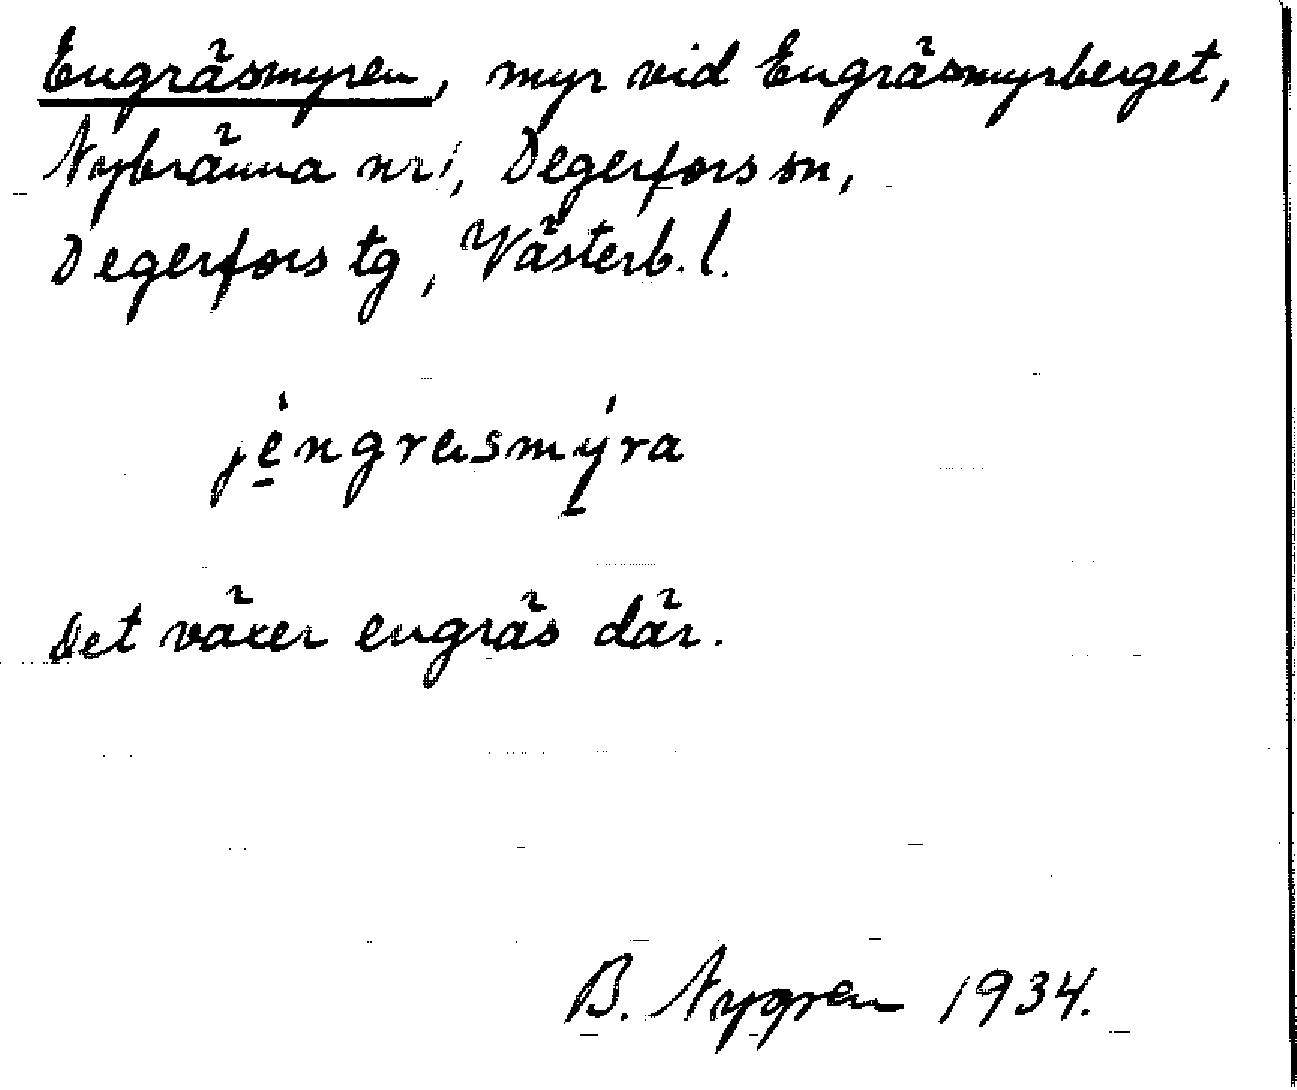 Engräsmyren, myr vid Engräsmyrberget,
Nybränna nr 1, Degerfors sn,
Degerfors tg, Västerb. l.
jèngrasmýra
Det växer engräs där.
B. Nygren 1934.